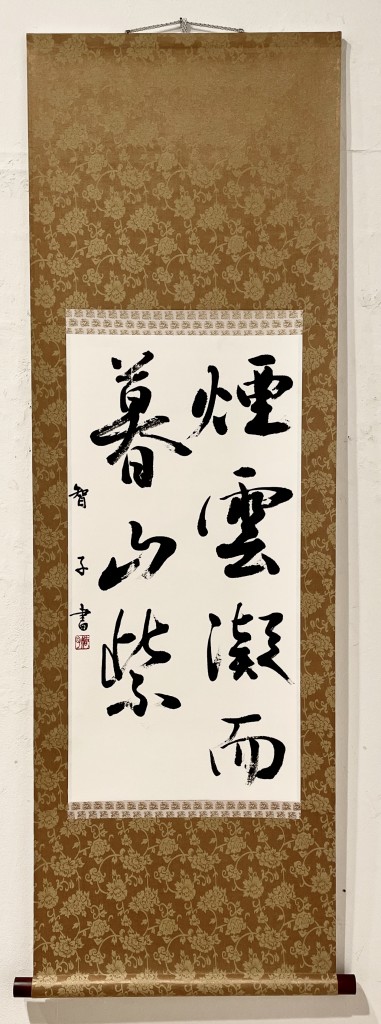 煙雲凝而
暮山紫
智子書